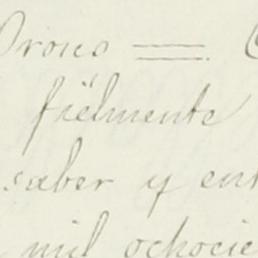 Orozco ==
fielmente
saber y ent
mil ochocie